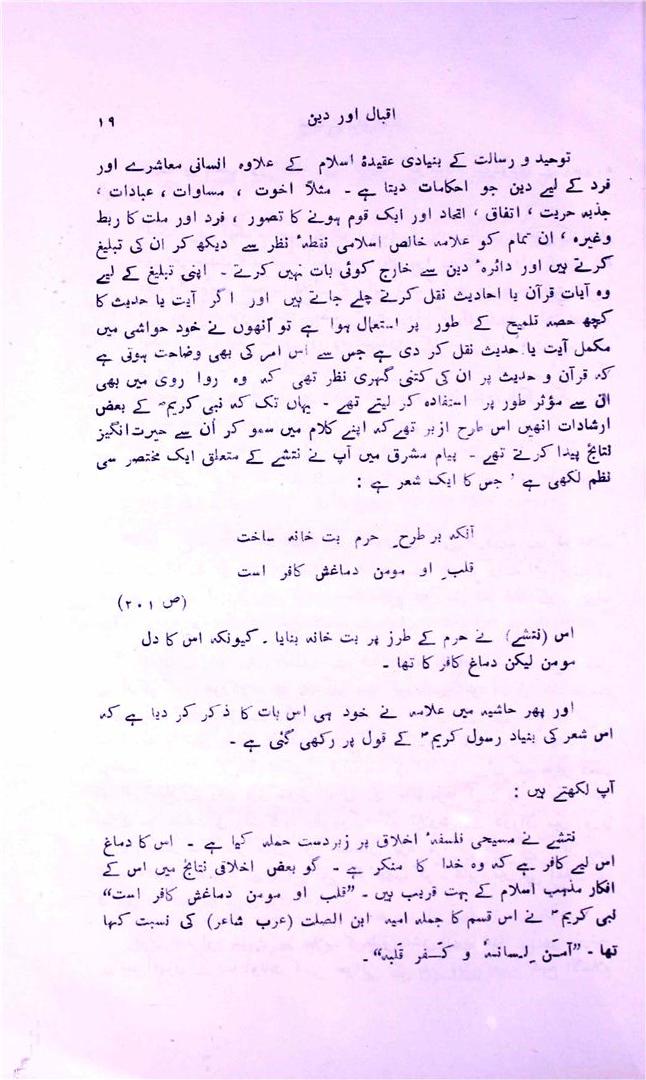 اقبال اور دین
۱۹
توحید و رسالت کے بنیادی عقیدۂ اسلام کے علاوہ انسانی معاشرے اور
فرد کے لیے دین جو احکامات دیتا ہے ۔ مثلاً اخوت ، مساوات ، عبادات ،
جذبہ حریت ، اتفاق ، اتحاد اور ایک قوم ہونے کا تصور ، فرد اور ملت کا ربط
وغیرہ ، ان تمام کو علامہ خالص اسلامی نقطۂ نظر سے دیکھ کر ان کی تبلیغ
کرتے ہیں اور دائرۂ دین سے خارج کوئی بات نہیں کرتے ۔ اپنی تبلیغ کے لیے
وہ آیات قرآن یا احادیث نقل کرتے چلے جاتے ہیں اور اگر آیت یا حدیث کا
کچھ حصہ تلمیح کے طور پر استعمال ہوا ہے تو اُنھوں نے خود حواشی میں
مکمل آیت یا حدیث نقل کر دی ہے جس سے اس امر کی بھی وضاحت ہوتی ہے
کہ قرآن و حدیث پر ان کی کتنی گہری نظر تھی کہ وہ روا روی میں بھی
ان سے مؤثر طور پر استفادہ کر لیتے تھے ۔ یہاں تک کہ نبی کریمؐ کے بعض
ارشادات انھیں اس طرح ازبر تھے کہ اپنے کلام میں سمو کر اُن سے حیرت انگیز
نتائج پیدا کرتے تھے ۔ پیام مشرق میں آپ نے نتشے کے متعلق ایک مختصر سی
نظم لکھی ہے ، جس کا ایک شعر ہے :
آنکہ بر طرحِ حرم بت خانہ ساخت
قلبِ او مومن دماغش کافر است
(ص ۲۰۱)
اس (نتشے) نے حرم کے طرز پر بت خانہ بنایا ۔ کیونکہ اس کا دل
مومن لیکن دماغ کافر کا تھا ۔
اور پھر حاشیہ میں علامہ نے خود ہی اس بات کا ذکر کر دیا ہے کہ
اس شعر کی بنیاد رسول کریمؐ کے قول پر رکھی گئی ہے ۔
آپ لکھتے ہیں :
نتشے نے مسیحی فلسفۂ اخلاق پر زبردست حملہ کیا ہے ۔ اس کا دماغ
اس لیے کافر ہے کہ وہ خدا کا منکر ہے ۔ گو بعض اخلاقی نتائج میں اس کے
افکار مذہب اسلام کے بہت قریب ہیں ۔ ”قلب او مومن دماغش کافر است“
نبی کریمؐ نے اس قسم کا جملہ امیہ ابن الصلت (عرب شاعر) کی نسبت کہا
تھا ۔ ”آمَنَ لِسانہُ و کَفَر قلبہ“ ۔